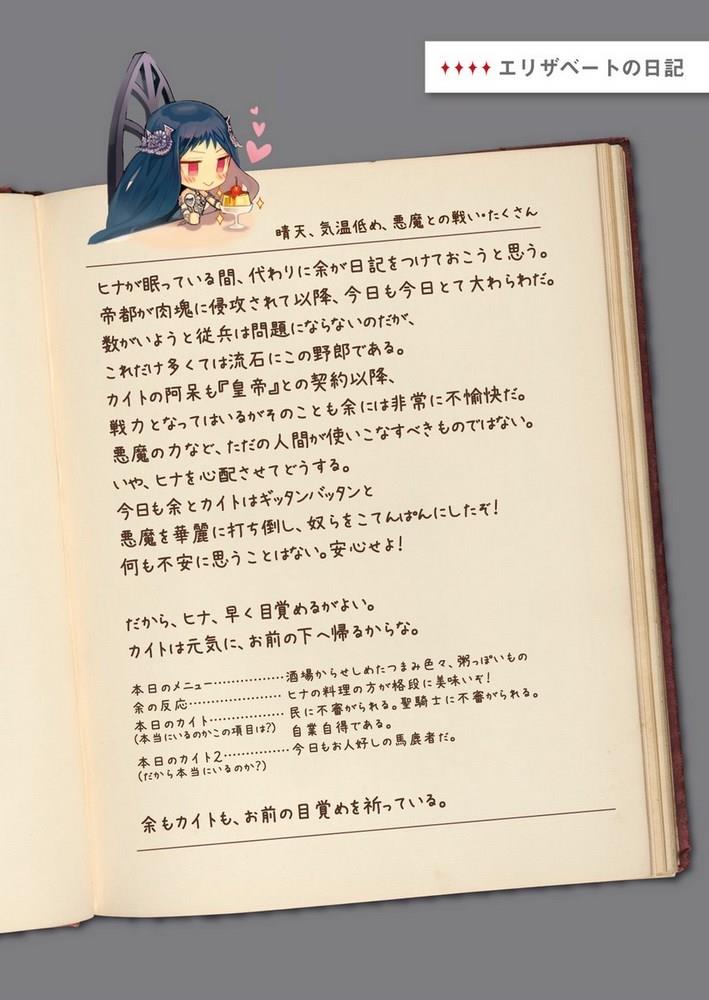 エリザベートの日記
晴天、気温低め、悪魔との戦い・たくさん
ヒナが眠っている間、代わりに余が日記をつけておこうと思う。
帝都が肉塊に侵攻されて以降、今日も今日とて大わらわだ。
数がいようと従兵は問題にならないのだが、
これだけ多くては流石にこの野郎である。
カイトの阿呆も『皇帝』との契約以降、
戦力となってはいるがそのことも余には非常に不愉快だ。
悪魔の力など、ただの人間が使いこなすべきものではない。
いや、ヒナを心配させてどうする。
今日も余とカイトはギッタンバッタンと
悪魔を華麗に打ち倒し、奴らをこてんぱんにしたぞ!
何も不安に思うことはない。安心せよ!
だから、ヒナ、早く目覚めるがよい。
カイトは元気に、お前の下へ帰るからな。
本日のメニュー………………酒場からせしめたつまみ色々、粥っぽいもの
余の反応……………………ヒナの料理の方が格段に美味いぞ!
本日のカイト………………民に不審がられる。聖騎士に不審がられる。
(本当にいるのかこの項目は?) 自業自得である。
本日のカイト2……………今日もお人好しの馬鹿者だ。
(だから本当にいるのか?)
余もカイトも、お前の目覚めを祈っている。